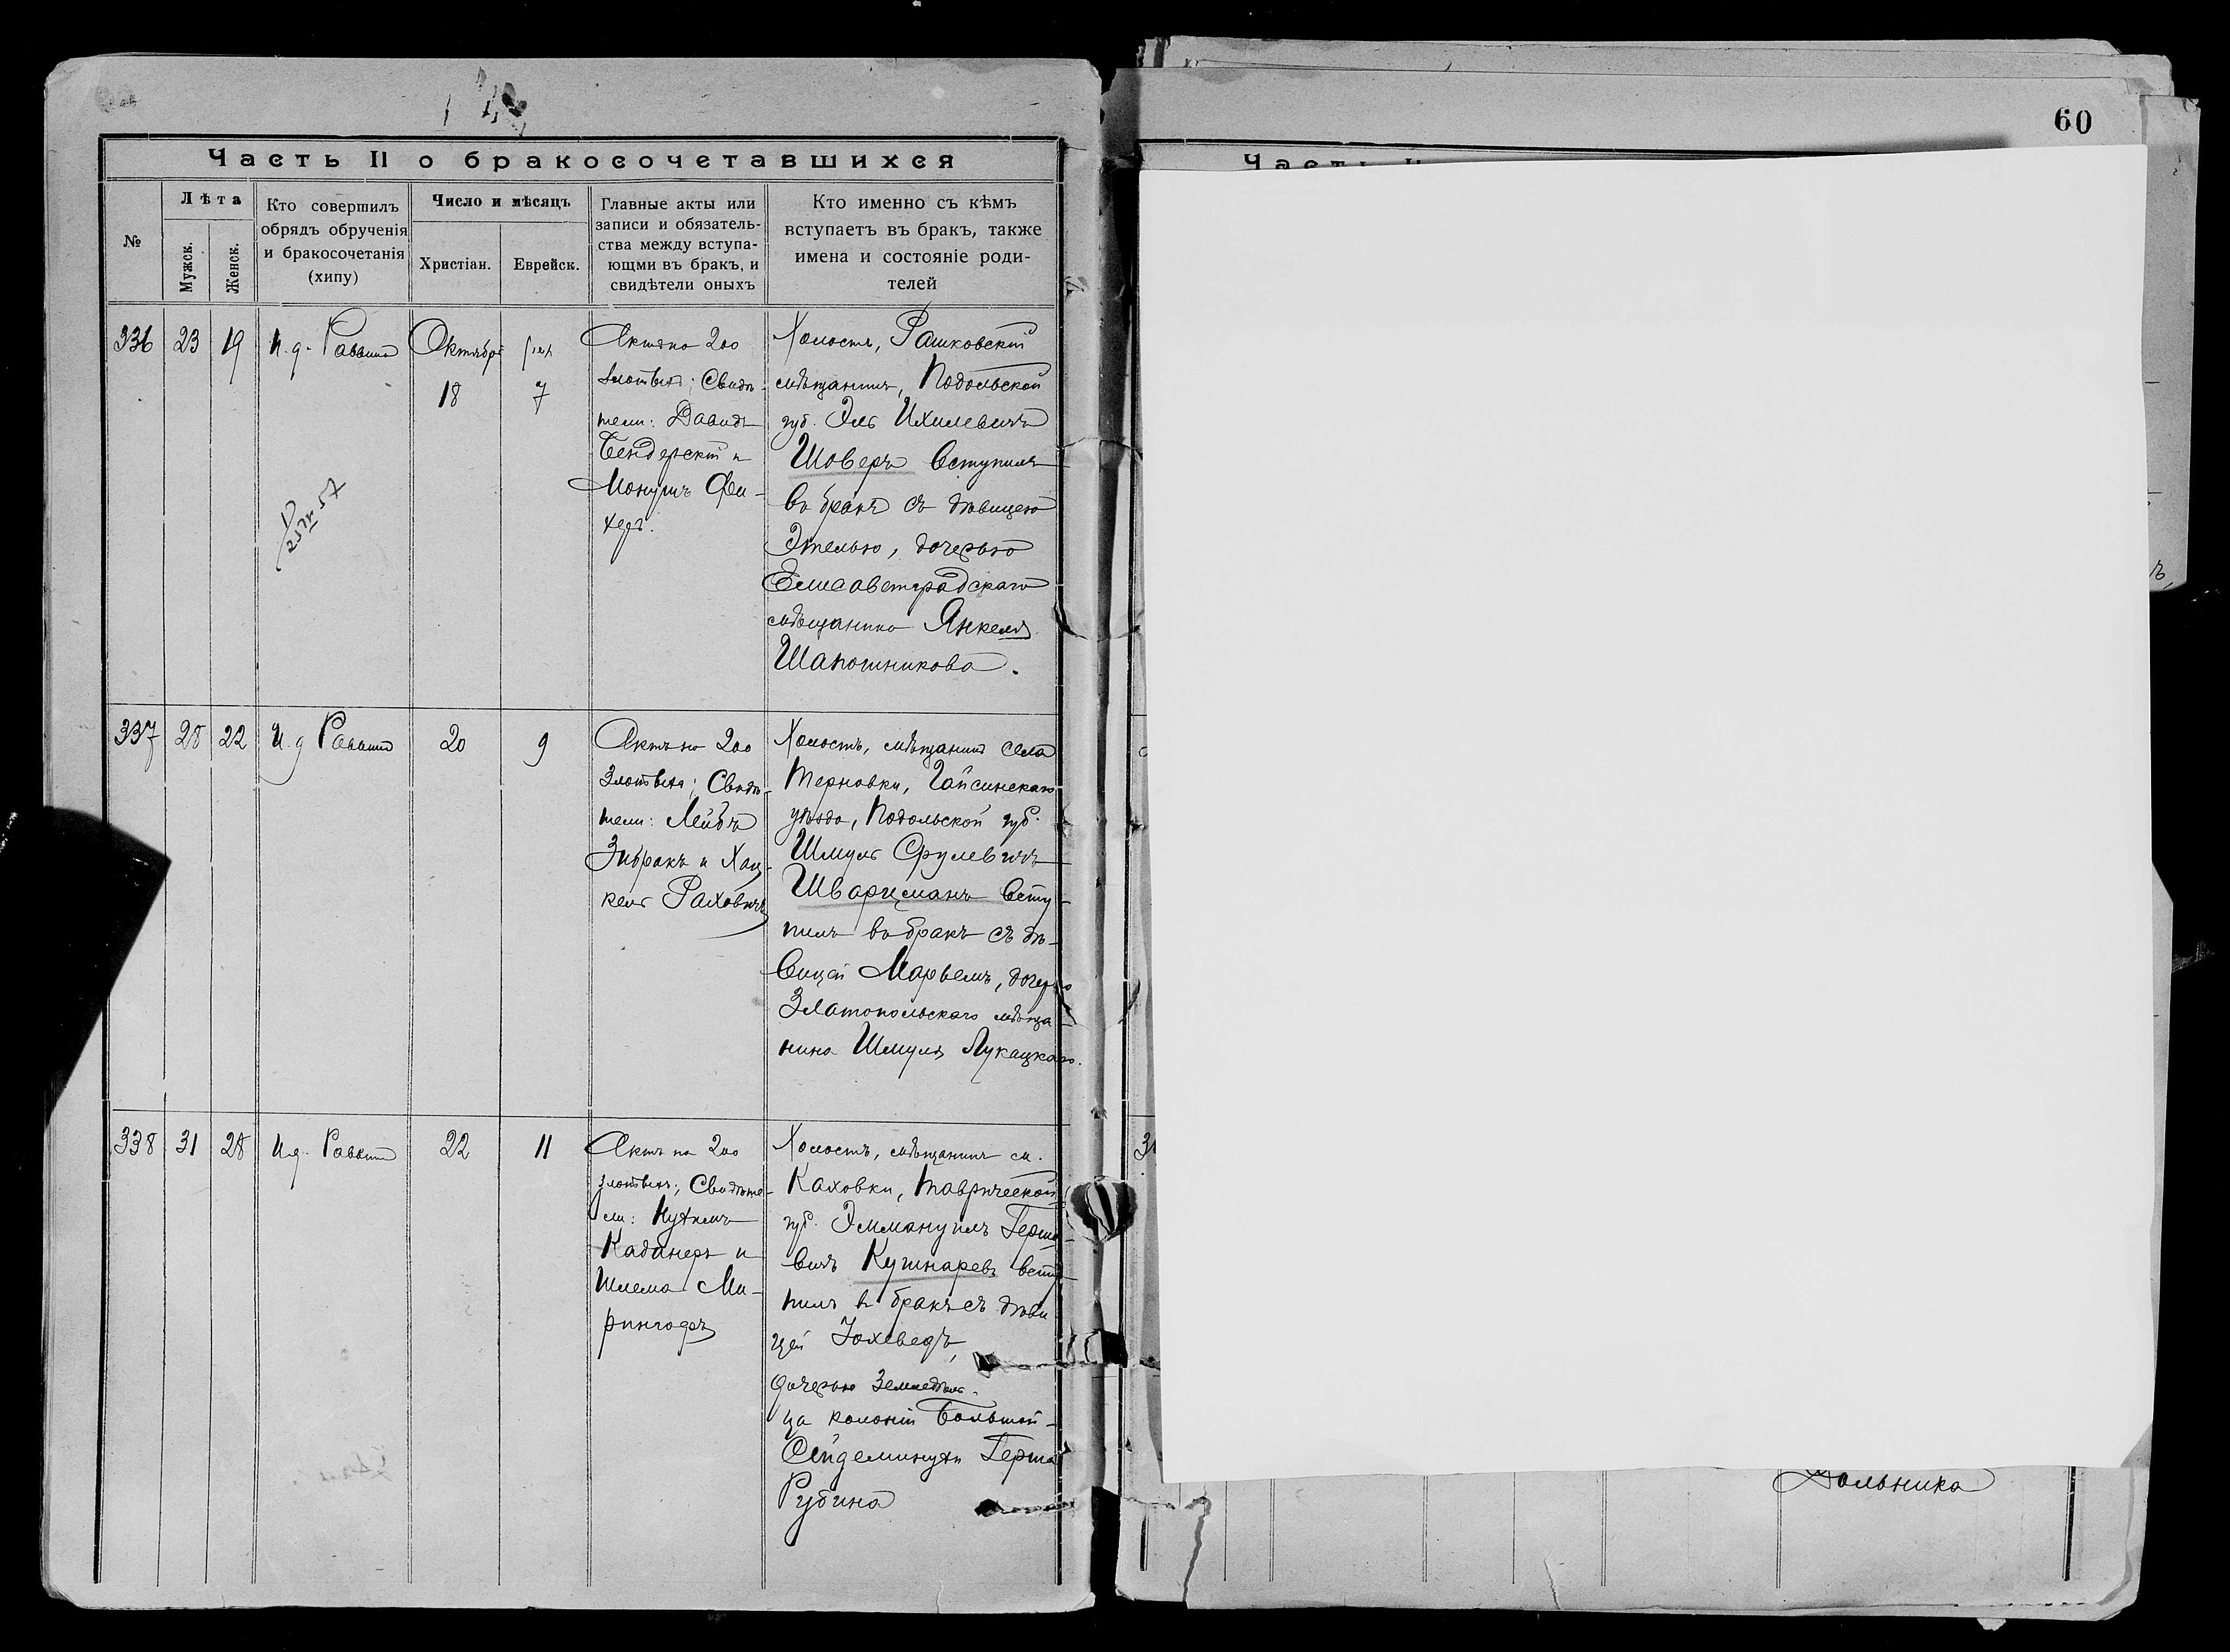 60
Часть II о бракосочетавшихся
№
Лѣта
Мужск.
Женск.
Кто совершилъ
обрядъ обрученія
и бракосочетанія
(хипу)
Число и мѣсяцъ
Христіан.
Еврейск.
Главные акты или
записи и обязатель-
ства между вступа-
ющми въ бракъ, и
свидѣтели оныхъ
Кто именно съ кѣмъ
вступаетъ въ бракъ, также
имена и состояніе роди-
телей
336
23
19
И. д. Раввина
Октября
18
7
Актъ на 200
злотыхъ; Свидѣ-
тели: Давидъ
Бендерскій и
Холостъ, Рашковскій
мѣщанинъ, Подольской
губ. Эль Ихилевичъ
Шоверъ вступилъ
въ бракъ съ дѣвицею
Этелью, дочерью
Елисаветградскаго
мѣщанина Янкеля
Шапошникова.
337
28
22
И. д. Раввина
20
9
Актъ на 200
злотыхъ; Свидѣ-
тели: Лейбъ
Зибракъ и Хац-
кель Раховичъ
Холостъ, мѣщанинъ села
Терновки, Гайсинскаго
уѣзда, Подольской губ.
Шмуль Срулевичъ
Шварцманъ всту-
пилъ въ бракъ съ дѣ-
вицей Марьемъ, дочерью
Златопольскаго мѣща-
нина Шмуля Лукацкаго.
338
31
28
И. д. Раввина
22
11
Актъ на 200
злотыхъ; Свидѣте-
ли: Нухимъ
Кадинеръ и
Шлема Ми-
Холостъ, мѣщанинъ м.
Каховки, Таврической
губ. Эммануилъ Гершо-
вичъ Кушнаревъ всту-
пилъ въ бракъ съ дѣви-
цей Іохеведъ,
дочерью Земледѣль-
ца колоніи Большой-
Сейдеминухи Герша
Рубина
Дольника